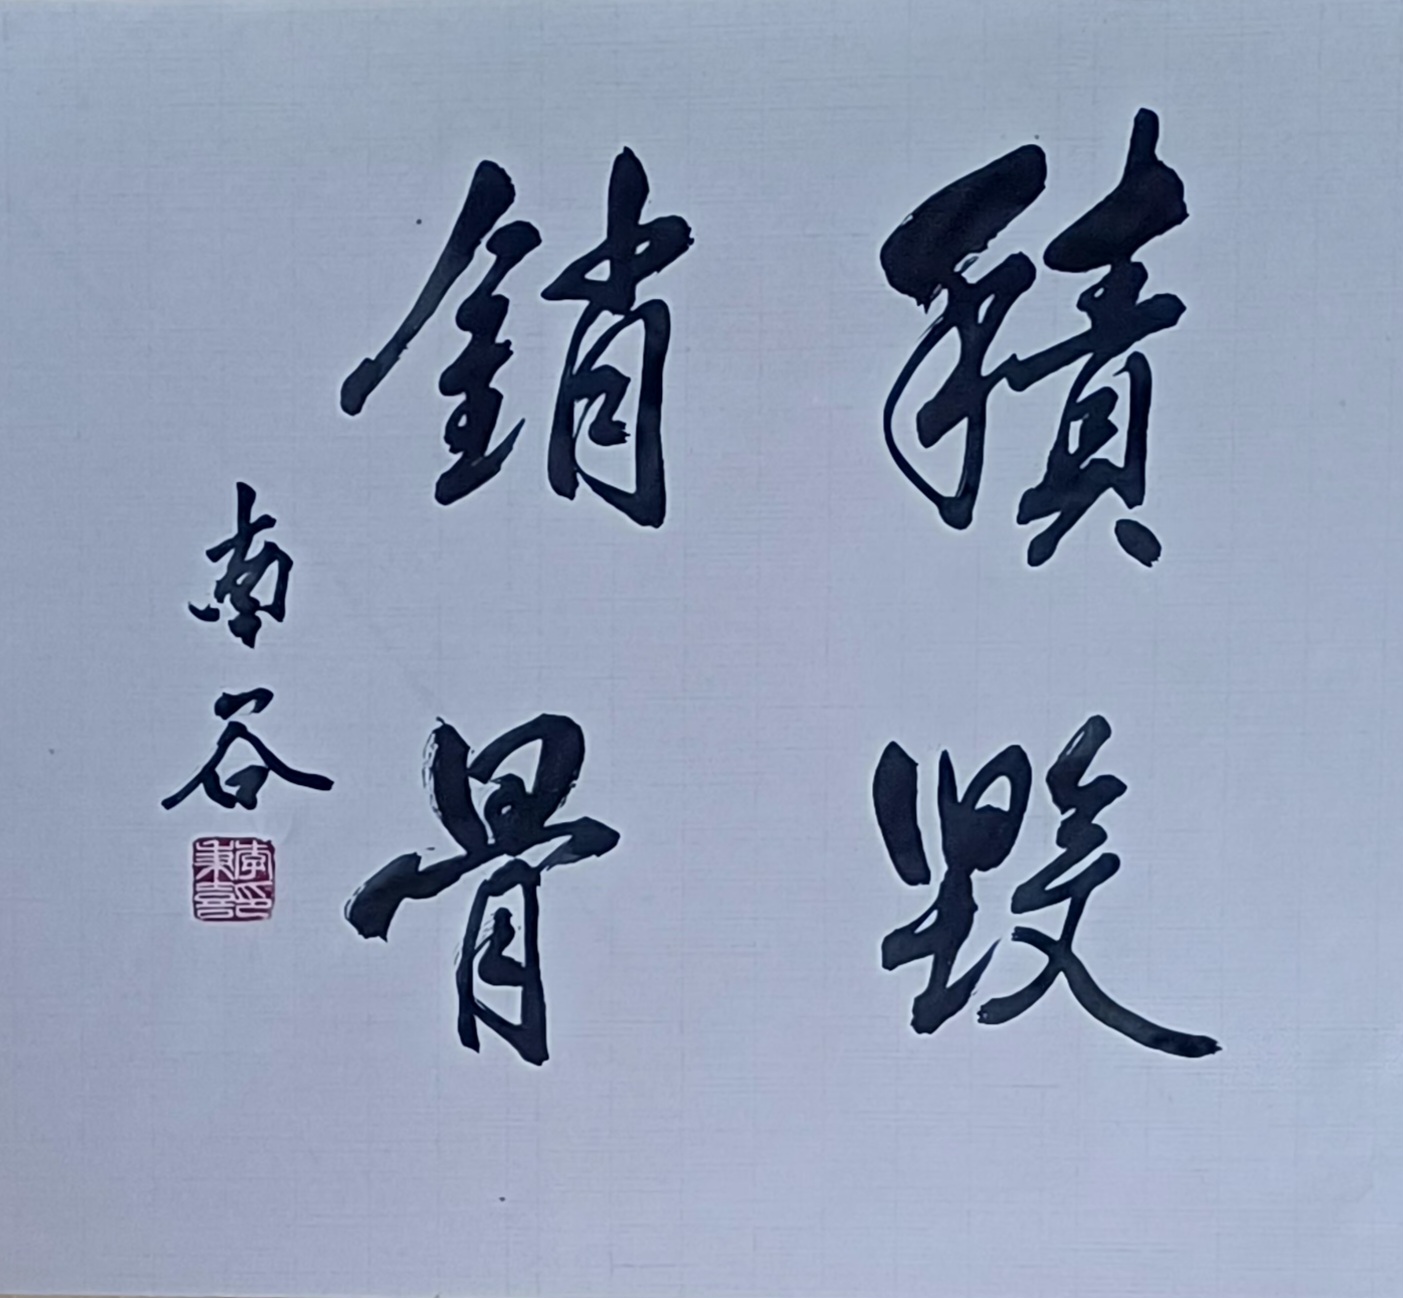 積毀
銷骨
南谷